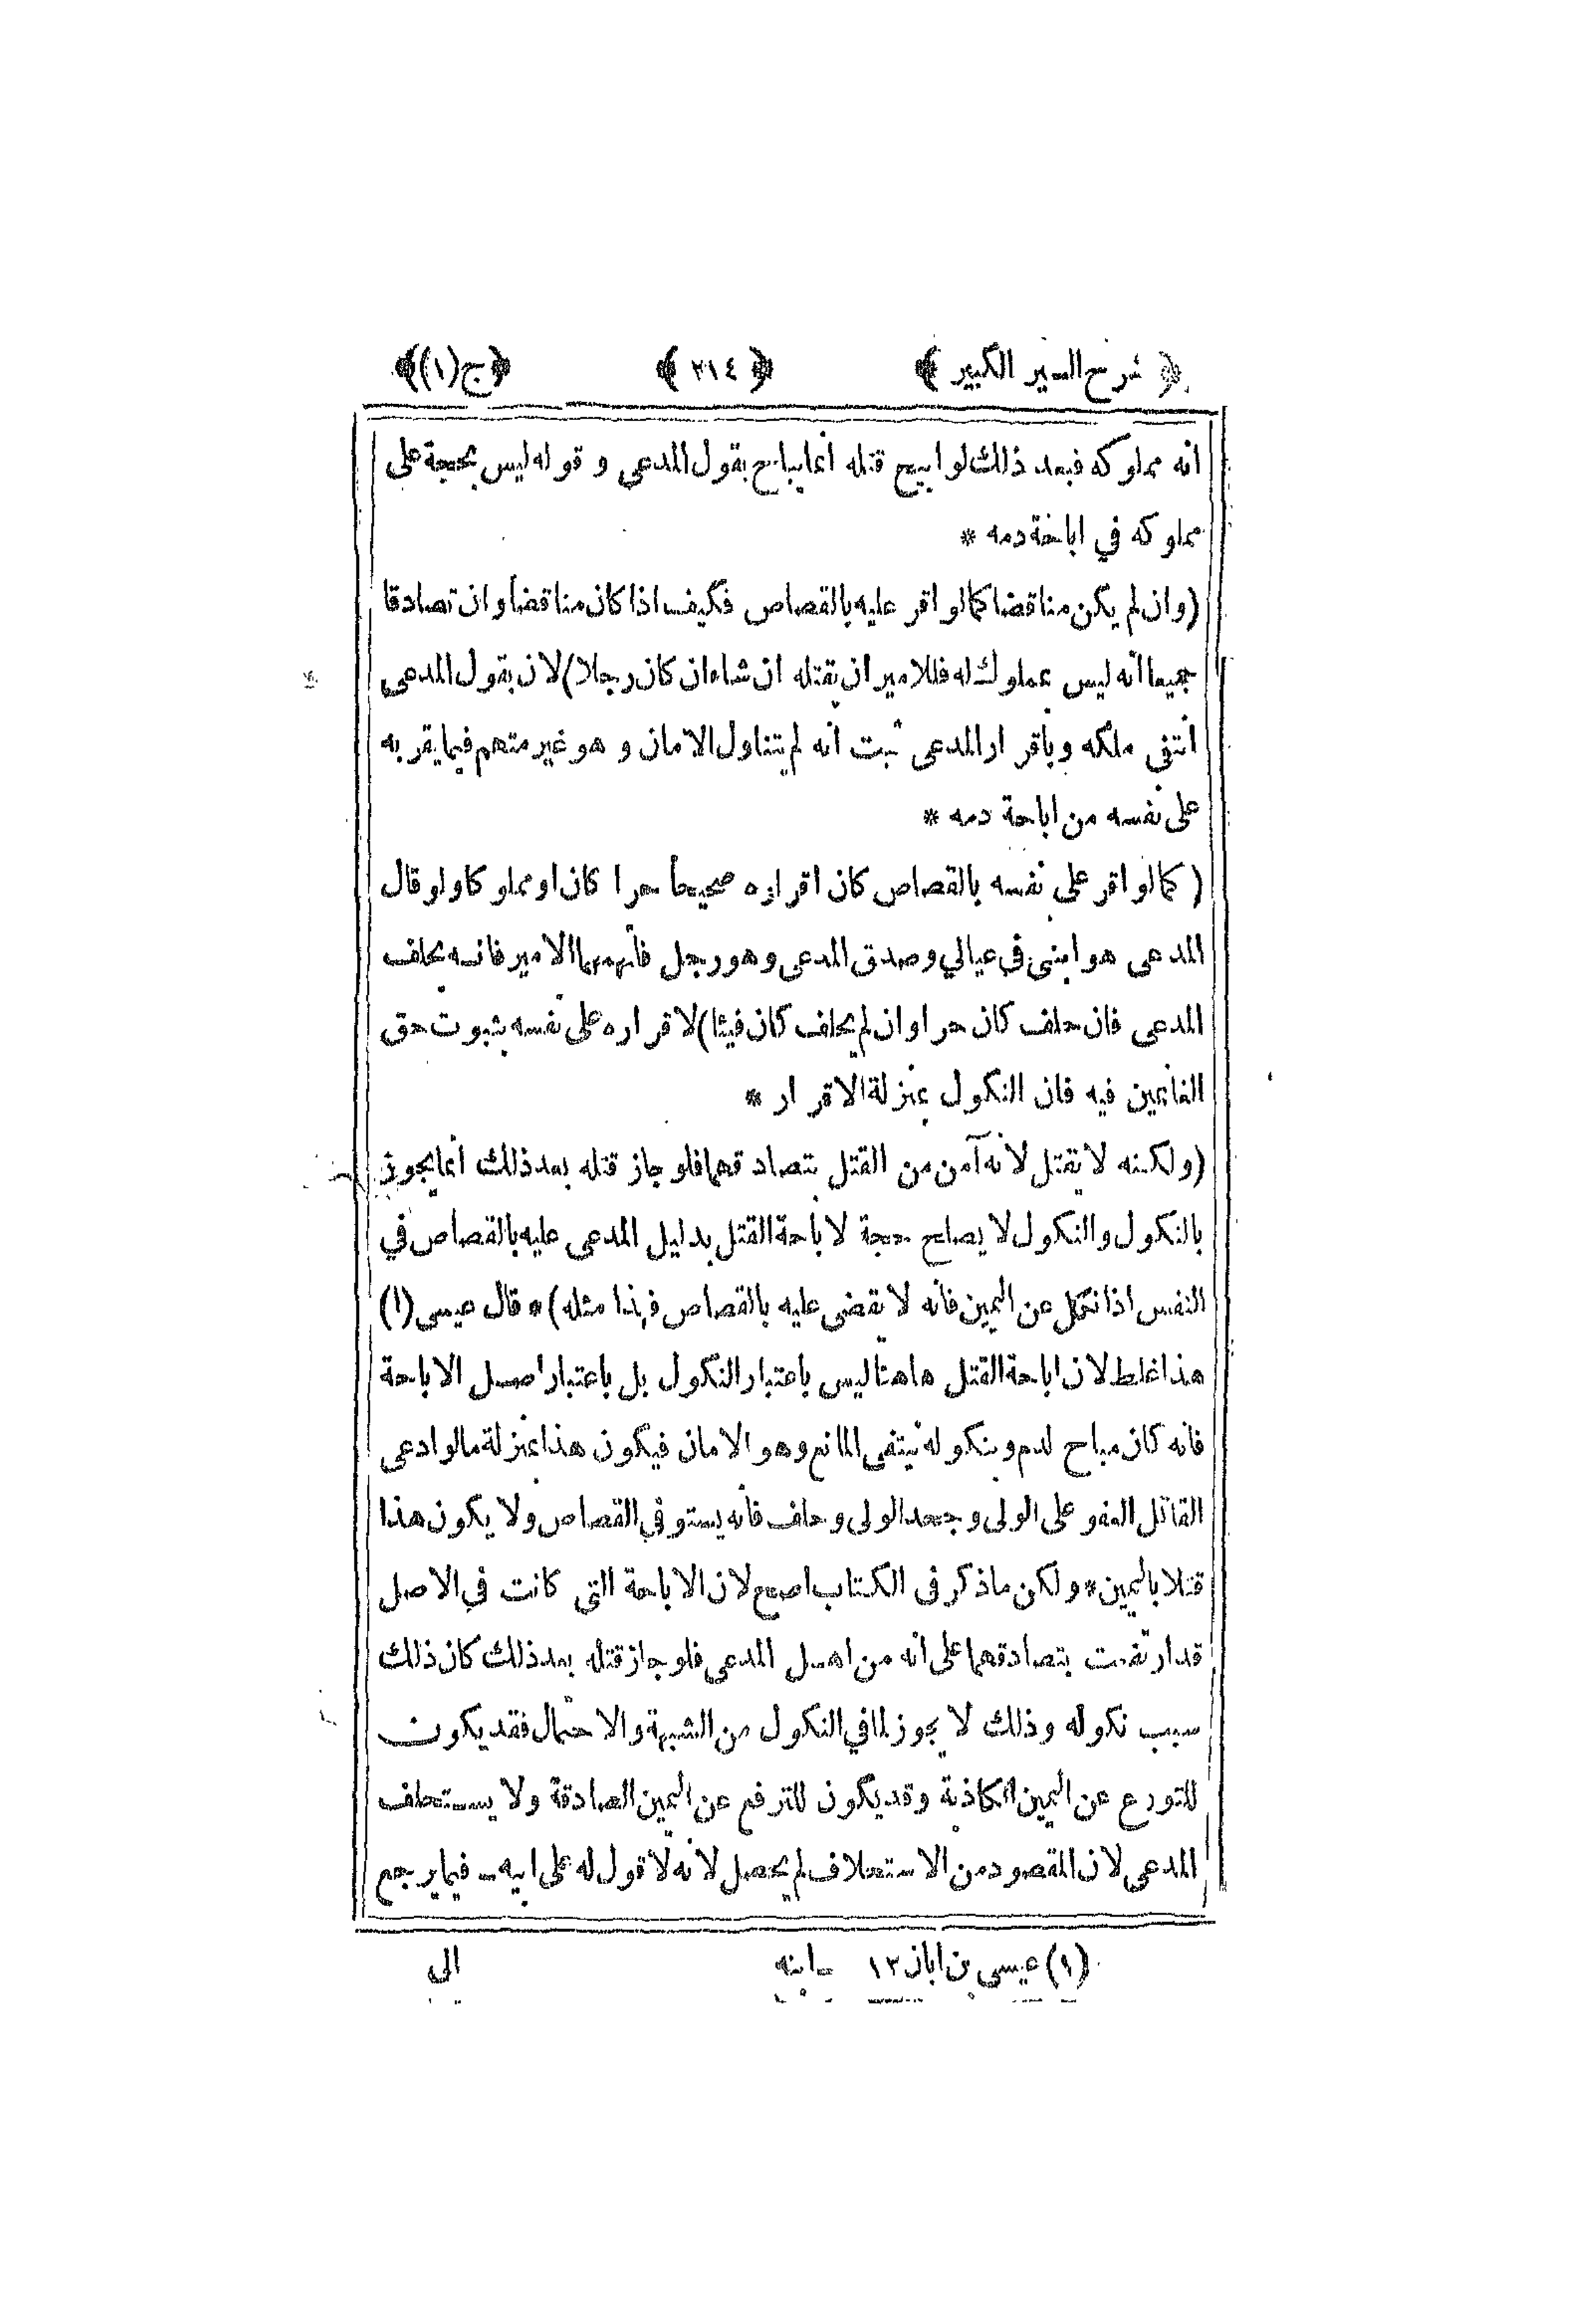 ﴿ شرح السير الكبير ﴾ ﴿ ٢١٤ ﴾ ﴿ج(١)﴾
انه مملوكه فبعد ذلك لو ابيح قتله انما يباح بقول المدعى و قوله ليس بحجة على
مملوكه في اباحة دمه *
(وان لم يكن مناقضا كما لو اقر عليه بالقصاص فكيف اذا كان مناقضا وان تصادقا
جميعا انه ليس بمملوك له فللامير ان يقتله ان شاء ان كان رجلا) لان بقول المدعى
انتفى ملكه وباقرار المدعى ثبت انه لم يتناول الامان و هو غير متهم فيما يقر به
على نفسه من اباحة دمه *
( كما لو اقر على نفسه بالقصاص كان اقراره صحيحا حرا كان او مملوكا ولو قال
المدعى هو ابنى في عيالي وصدق المدعى وهو رجل فاتهمهما الامير فانه يحلف
المدعى فان حلف كان حرا وان لم يحلف كان فيئا) لاقراره على نفسه بثبوت حق
الغانمين فيه فان النكول بمنزلة الاقرار *
(ولكنه لا يقتل لانه آمن من القتل بتصادقهما فلو جاز قتله بعد ذلك انما يجوز
بالنكول والنكول لا يصلح حجة لاباحة القتل بدليل المدعى عليه بالقصاص في
النفس اذا نكل عن اليمين فانه لا يقضى عليه بالقصاص فهذا مثله) * قال عيسى (١)
هذا غلط لان اباحة القتل هاهنا ليس باعتبار النكول بل باعتبار اصل الاباحة
فانه كان مباح لدم وبنكوله ينتفى المانع وهو الامان فيكون هذا بمنزلة ما لو ادعى
القاتل العفو على الولى وجحد الولى وحلف فانه يستوفي القصاص ولا يكون هذا
قتلا باليمين * ولكن ما ذكر فى الكتاب اصح لان الاباحة التى كانت في الاصل
قد ارتفعت بتصادقهما على انه من اهل المدعى فلو جاز قتله بعد ذلك كان ذلك
سبب نكوله وذلك لا يجوز لما في النكول من الشبهة والاحتمال فقد يكون
للتورع عن اليمين الكاذبة وقد يكون للترفع عن اليمين الصادقة ولا يستحلف
المدعى لان المقصود من الاستحلاف لم يحصل لانه لا قول له على ابيه ـ فيما يرجع
(١) عيسى بن ابان ١٢ ـ ابنه الى